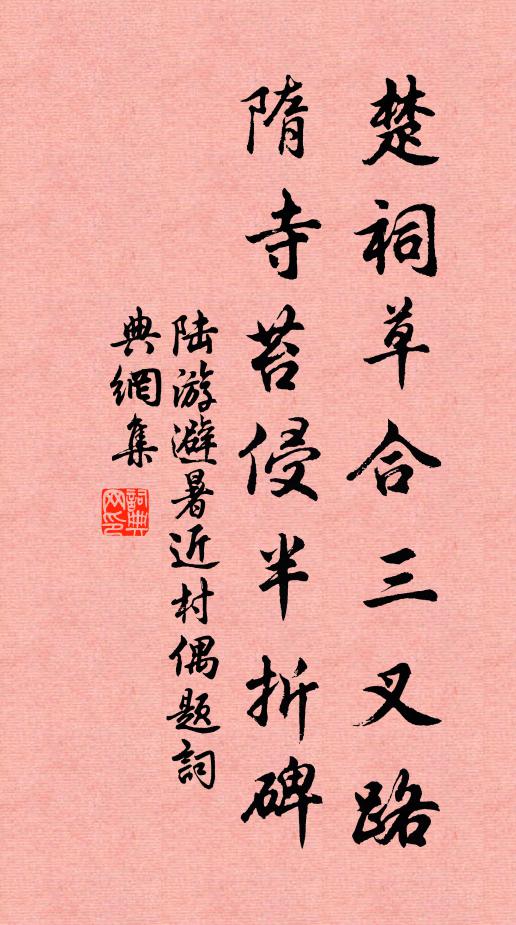 楚祠草合三叉路
隋寺苔侵半折碑
陆游避暑近村偶题詞
典網集
詞典
网印